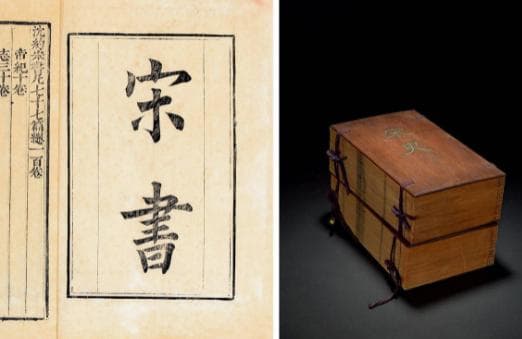 宋書
沈約宋書凡七十七篇總一百卷
帝紀十卷
志三十卷
宋史